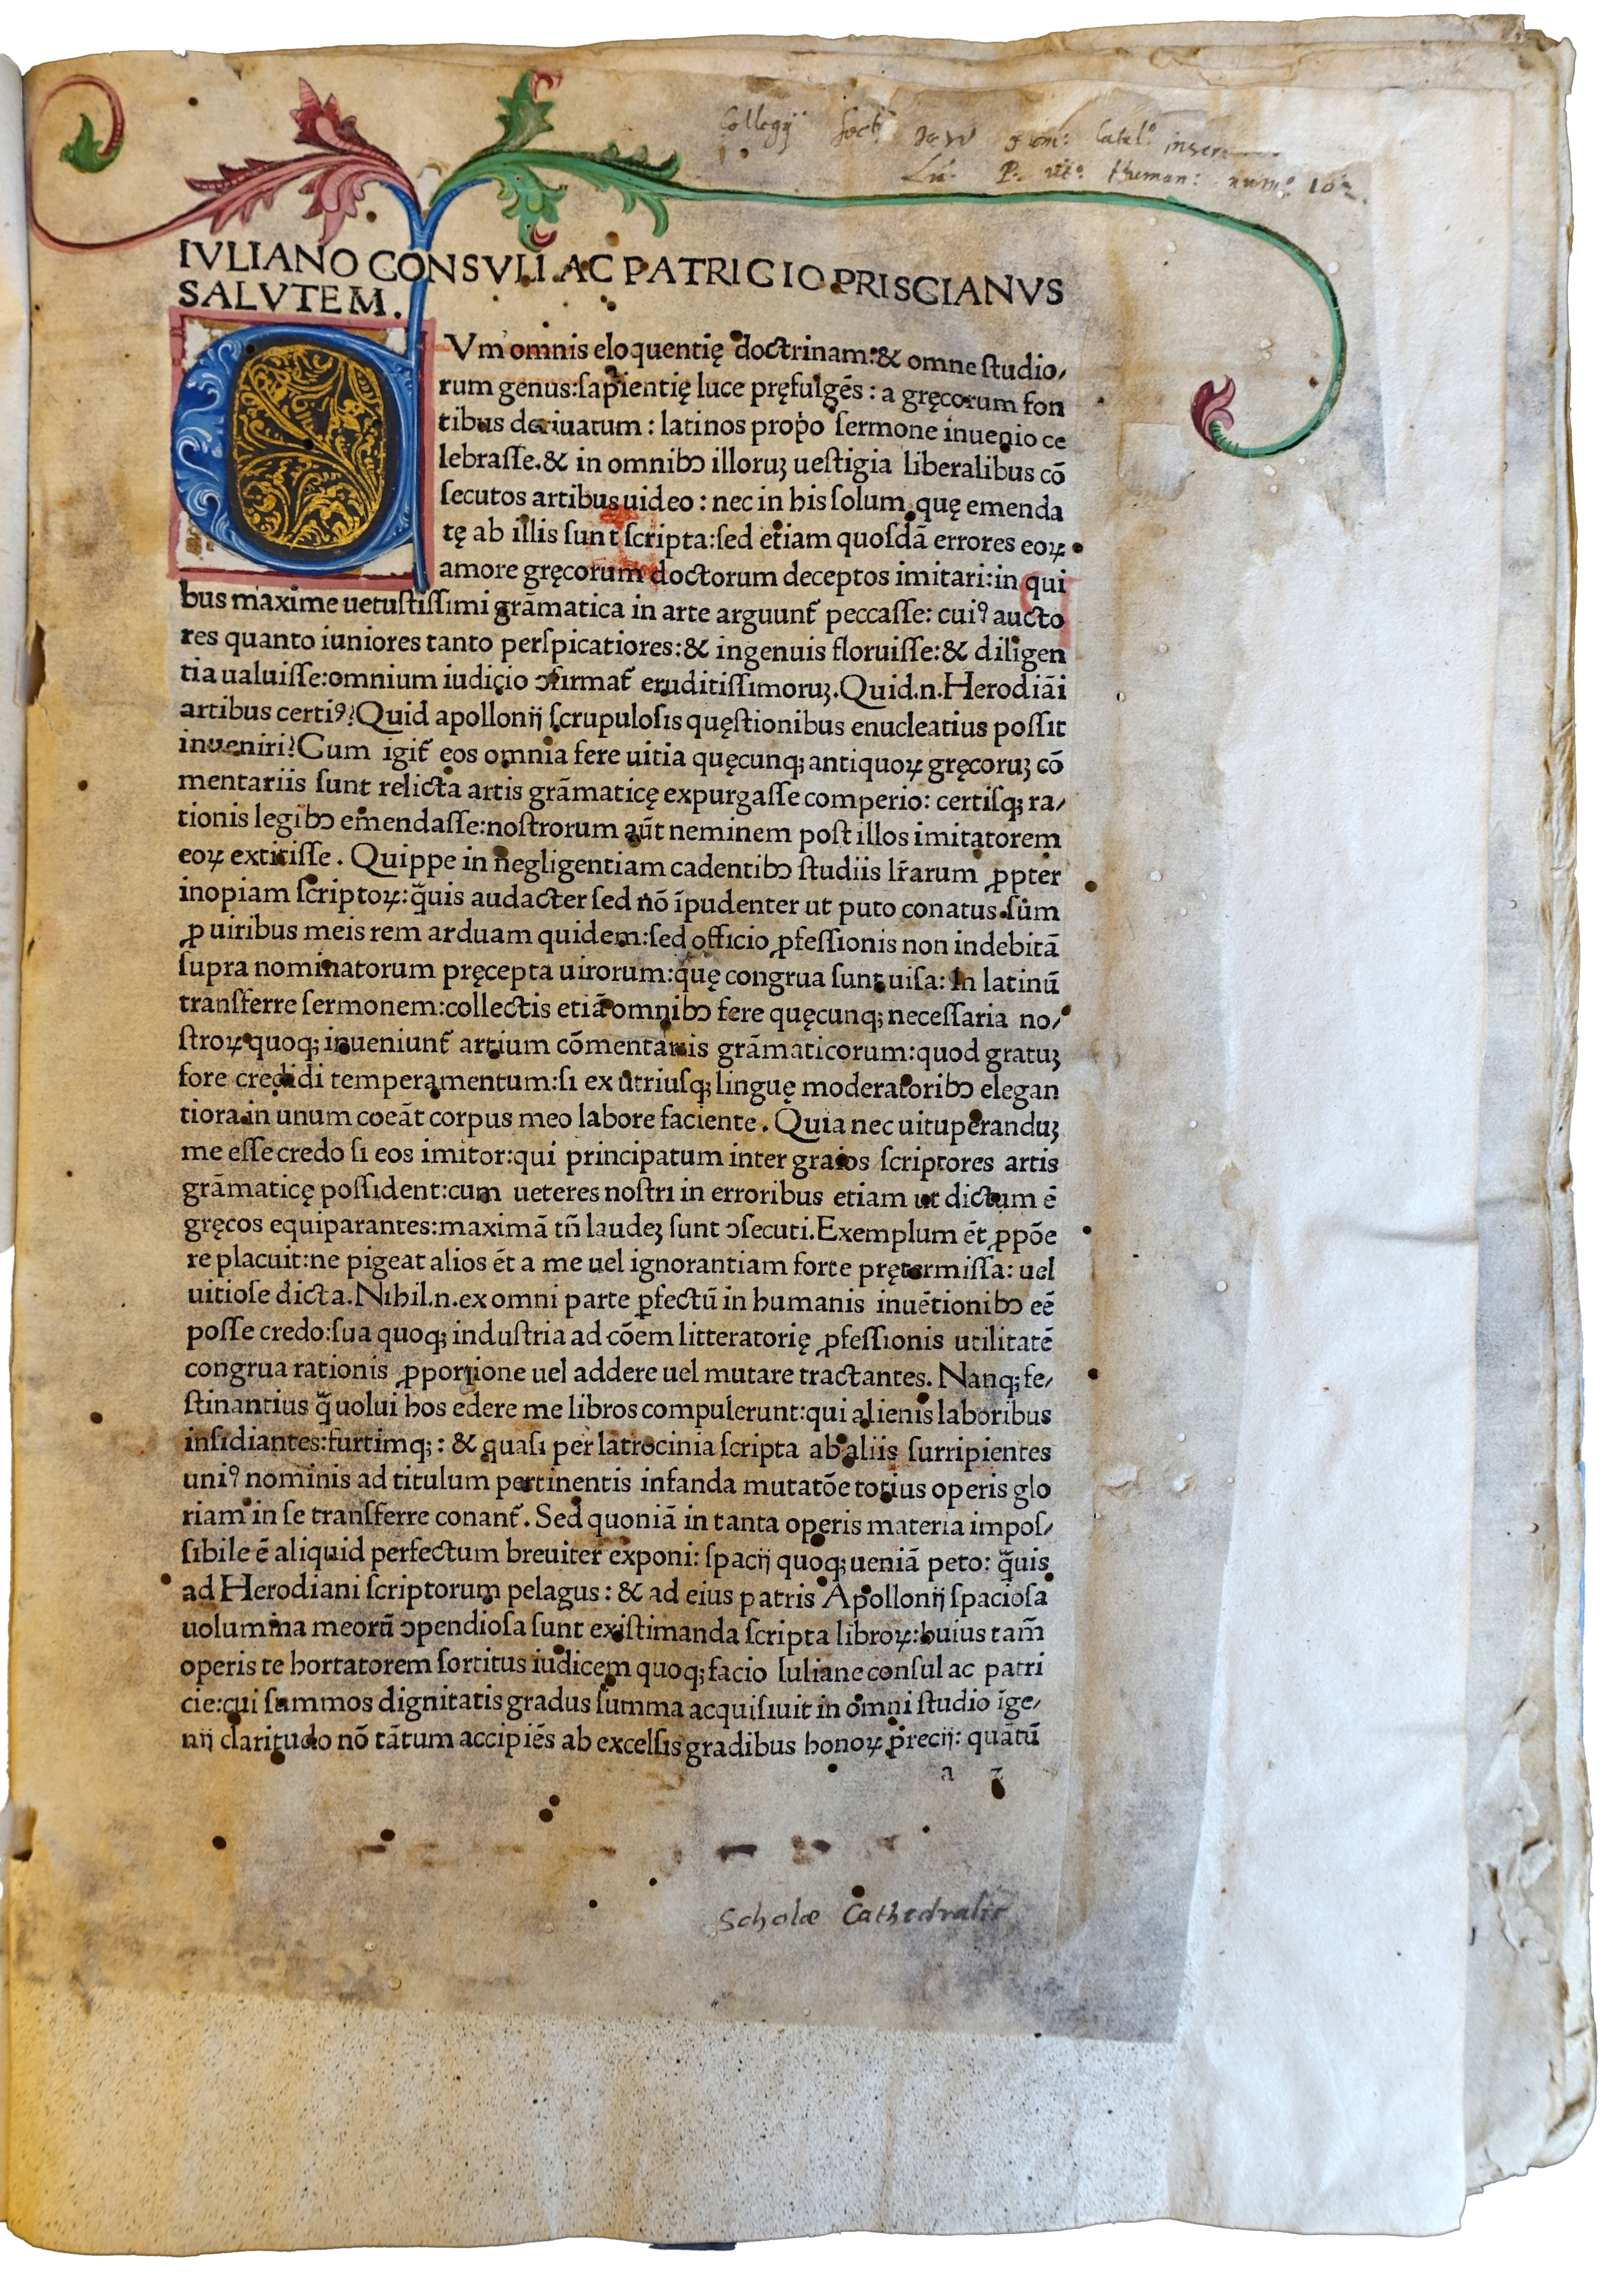 Collegij Soctis Jesu
num: 102.
IVLIANO CONSVLI AC PATRICIO PRISCIANVS
SALVTEM.
CVm omnis eloquentię doctrinam:& omne studio/
rum genus:sapientię luce pręfulgēs: a gręcorum fon
tibus deriuatum: latinos prop̄o sermone inuenio ce
lebrasse.& in omnibɔ illoruꝫ uestigia liberalibus cō
secutos artibus uideo: nec in his solum quę emenda
tę ab illis sunt scripta:sed etiam quosdā errores eoꝝ
amore gręcorum doctorum deceptos imitari:in qui
bus maxime uetustissimi grāmatica in arte arguunt̄ peccasse: cuiꝰ aucto
res quanto iuniores tanto perspicatiores:& ingenuis floruisse:& diligen
tia ualuisse:omnium iudicio ɔfirmat̄ eruditissimoruꝫ.Quid.n.Herodiāi
artibus certiꝰ?Quid apollonij scrupulosis quęstionibus enucleatius possit
inueniri?Cum igit̄ eos omnia fere uitia quęcunqꝫ antiquoꝝ gręcoruꝫ cō
mentariis sunt relicta artis grāmaticę expurgasse comperio: certisqꝫ ra/
tionis legibɔ emendasse:nostrorum aūt neminem post illos imitatorem
eoꝝ extitisse. Quippe in negligentiam cadentibɔ studiis lr̄arum ꝓpter
inopiam scriptoꝝ:q̄uis audacter sed nō īpudenter ut puto conatus sum
ꝓ uiribus meis rem arduam quidem:sed officio ꝓfessionis non indebitā
supra nominatorum pręcepta uirorum:quę congrua sunt uisa: In latinū
transferre sermonem:collectis etiā omnibɔ fere quęcunqꝫ necessaria no/
stroꝝ quoqꝫ inueniunt̄ artium cōmentariis grāmaticorum:quod gratuꝫ
fore credidi temperamentum:si ex utriusqꝫ linguę moderatoribɔ elegan
tiora in unum coeāt corpus meo labore faciente. Quia nec uituperanduꝫ
me esse credo si eos imitor:qui principatum inter graios scriptores artis
grāmaticę possident:cum ueteres nostri in erroribus etiam ut dictum ē
gręcos equiparantes:maximā tn̄ laudeꝫ sunt ɔsecuti.Exemplum ēt ꝓpōe
re placuit:ne pigeat alios ēt a me uel ignorantiam forte prętermissa: uel
uitiose dicta.Nihil.n.ex omni parte ꝑfectū in humanis inuētionibɔ eē
posse credo:sua quoqꝫ industria ad cōem litteratorię ꝓfessionis utilitatē
congrua rationis ꝓportione uel addere uel mutare tractantes. Nanqꝫ fe/
stinantius q̄ uolui hos edere me libros compulerunt:qui alienis laboribus
insidiantes:furtimqꝫ: & quasi per latrocinia scripta ab aliis surripientes
uniꝰ nominis ad titulum pertinentis infanda mutatōe totius operis glo
riam in se transferre conant̄. Sed quoniā in tanta operis materia impos/
sibile ē aliquid perfectum breuiter exponi: spacij quoqꝫ ueniā peto: q̄uis
ad Herodiani scriptorum pelagus: & ad eius patris Apollonij spaciosa
uolumina meorū ɔpendiosa sunt existimanda scripta libroꝝ:huius tam̄
operis te hortatorem sortitus iudicem quoqꝫ facio Iuliane consul ac patri
cie:cui summos dignitatis gradus summa acquisiuit in omni studio īge/
nij claritudo nō tātum accipiēs ab excelsis gradibus honoꝝ precij: quātū
a 2
Scholæ Cathedralis